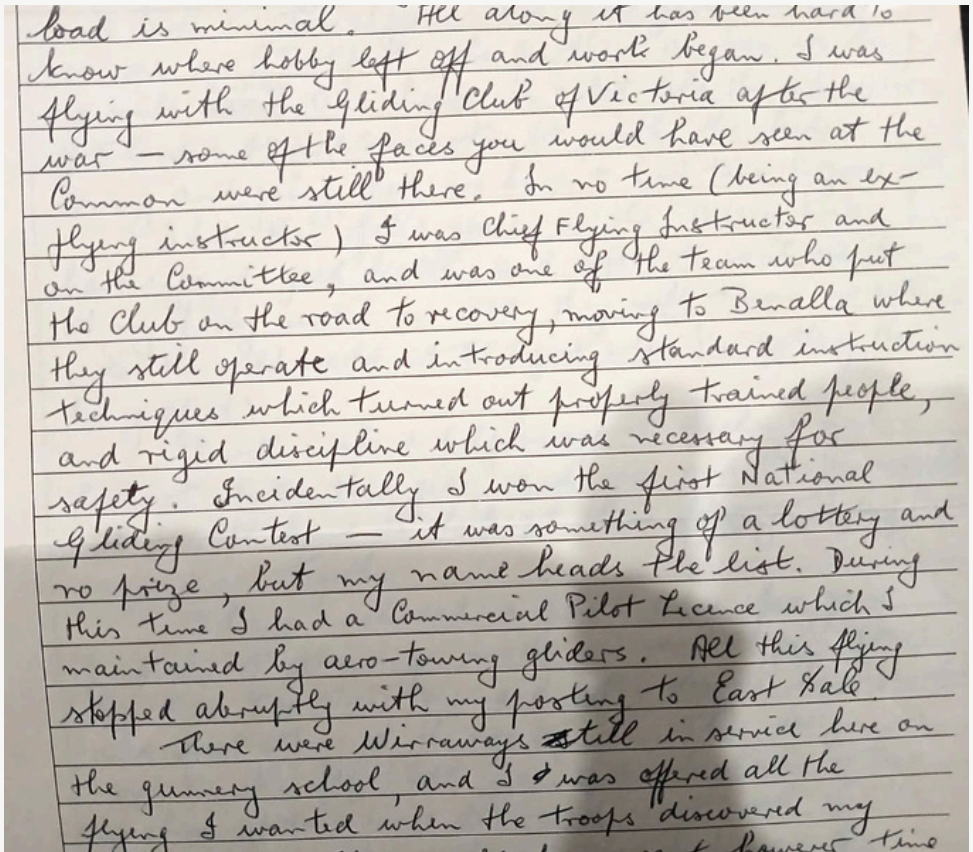 load is minimal. All along it has been hard to
know where hobby left off and work began. I was
flying with the Gliding Club of Victoria after the
war — some of the faces you would have seen at the
Common were still there. In no time (being an ex-
flying instructor) I was Chief Flying Instructor and
on the Committee, and was one of the team who put
the Club on the road to recovery, moving to Benalla where
they still operate and introducing standard instruction
techniques which turned out properly trained people,
and rigid discipline which was necessary for
safety. Incidentally I won the first National
Gliding Contest — it was something of a lottery and
no prize, but my name heads the list. During
this time I had a Commercial Pilot Licence which I
maintained by aero-towing gliders. All this flying
stopped abruptly with my posting to East Sale.
There were Wirraways still in service here on
the gunnery school, and I was offered all the
flying I wanted when the troops discovered my
however time